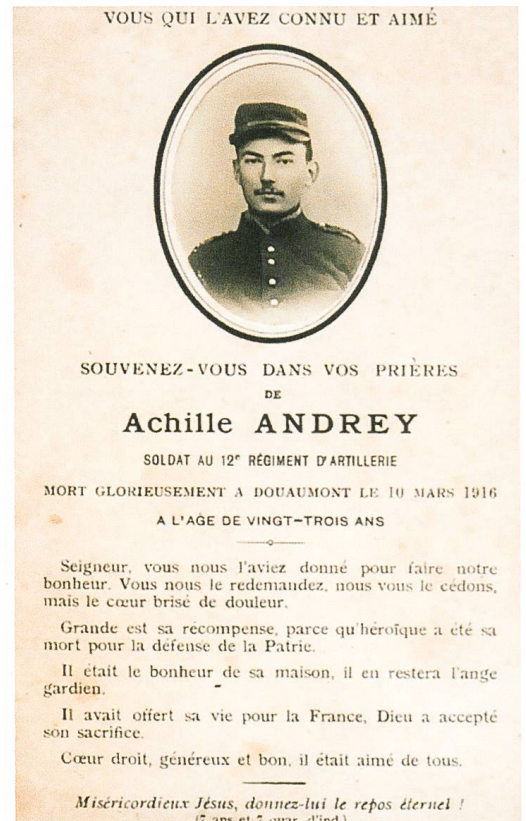 VOUS QUI L'AVEZ CONNU ET AIMÉ
SOUVENEZ-VOUS DANS VOS PRIÈRES
DE
Achille ANDREY
SOLDAT AU 12e RÉGIMENT D'ARTILLERIE
MORT GLORIEUSEMENT A DOUAUMONT LE 10 MARS 1916
A L'AGE DE VINGT-TROIS ANS
Seigneur, vous nous l'aviez donné pour faire notre
bonheur. Vous nous le redemandez, nous vous le cédons,
mais le cœur brisé de douleur.
Grande est sa récompense, parce qu'héroïque a été sa
mort pour la défense de la Patrie.
Il était le bonheur de sa maison, il en restera l'ange
gardien.
Il avait offert sa vie pour la France, Dieu a accepté
son sacrifice.
Cœur droit, généreux et bon, il était aimé de tous.
Miséricordieux Jésus, donnez-lui le repos éternel !
(7 ans et 7 quar. d'ind.)